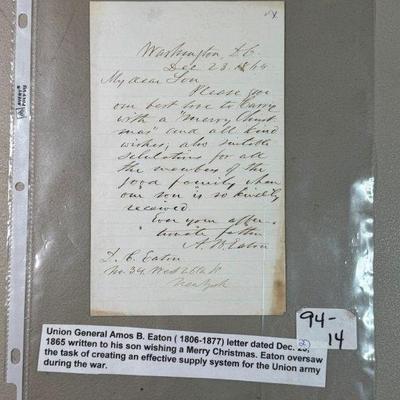 Washington, D.C.
Dec 23. 1865
My dear Son
Please give
our best love to
with a "Merry Christ
mas" and all kind
wishes, also suitable
salutations for all
the members of the
good family where
our son is so kindly
received.
Ever your affec-
tionate father
A. B. Eaton
D. C. Eaton
No. 34. West 26th St
New York
94-
14
Union General Amos B. Eaton ( 1806-1877) letter dated Dec. 23,
1865 written to his son wishing a Merry Christmas. Eaton oversaw
the task of creating an effective supply system for the Union army
during the war.